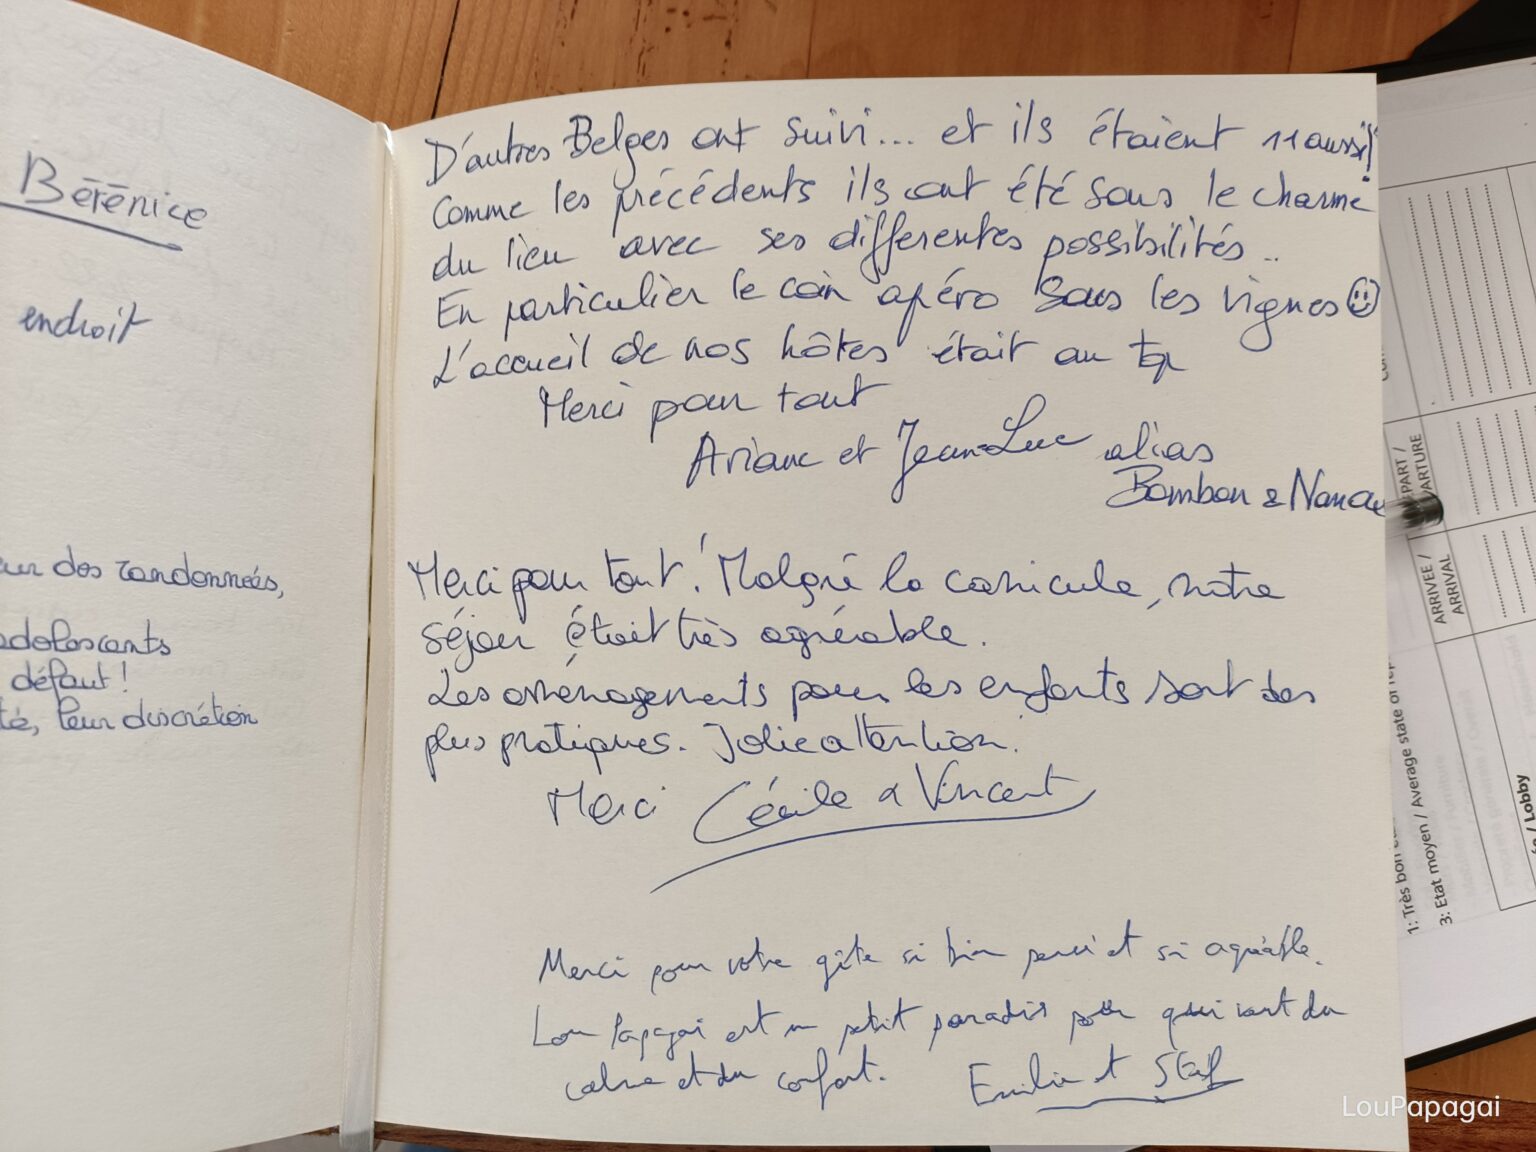 Bérénice
endroit
des randonnées,
adolescents
défaut !
té, leur discrétion
D'autres Belges ont suivi... et ils étaient 11 aussi!
Comme les précédents ils ont été sous le charme
du lieu avec ses differentes possibilités..
En particulier le coin apéro sous les vignes
L'accueil de nos hôtes était au top
Merci pour tout
Ariane et Jean-Luc alias
Bombon & Nanou
Merci pour tout! Malgré la canicule, notre
séjour était très agréable.
Les aménagements pour les enfants sont des
plus pratiques. Jolie attention.
Merci Cécile & Vincent
Merci pour votre gîte si bien pensé et si agréable.
Lou Papagai est un petit paradis pour qui vont du
calme et du confort. Emilie et Stef
PART /
ARTURE
ARRIVEE /
ARRIVAL
1: Très bon
3: Etat moyen / Average state
/ Lobby
LouPapagai